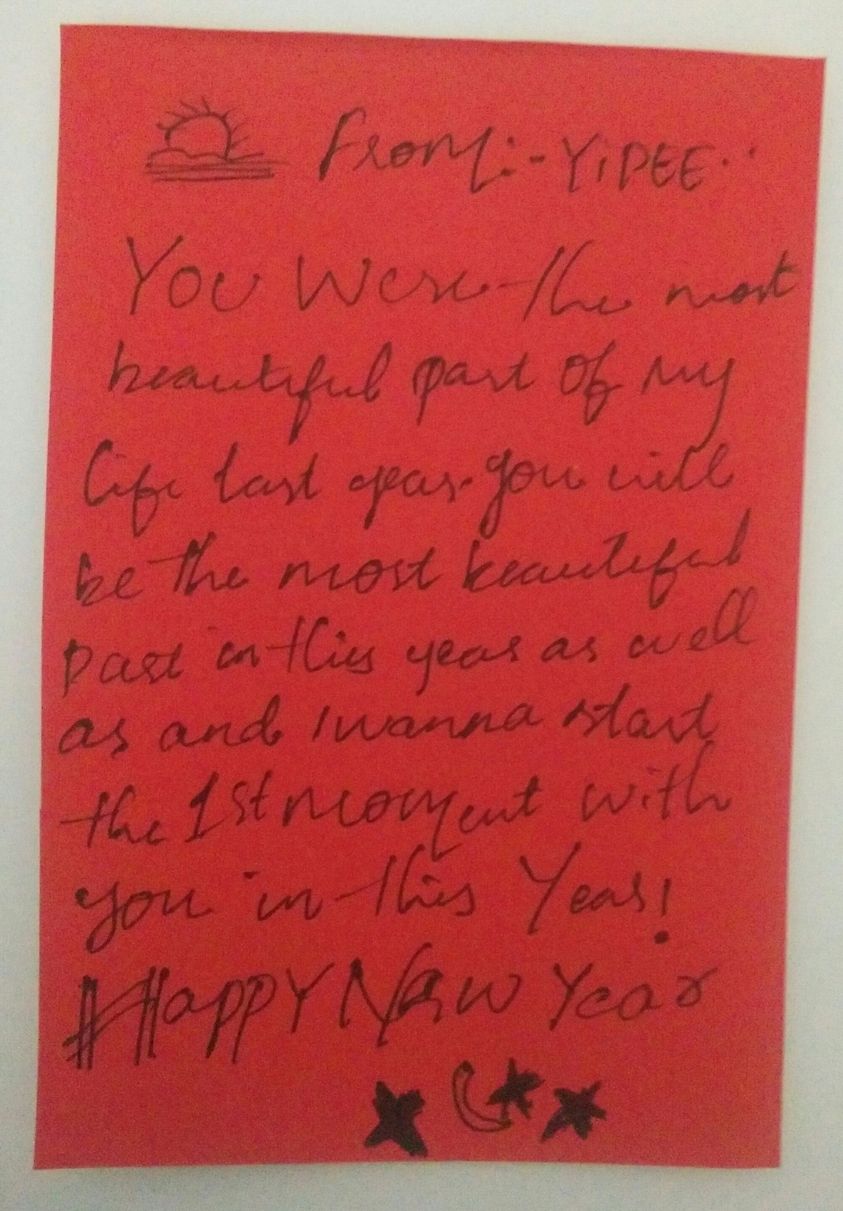 From:- YiPEE..
You Were the most
beautiful part of my
life last year. you will
be the most beautiful
Part in this year as well
as and I wanna start
the 1st moment with
you in this Year!
#Happy New Year